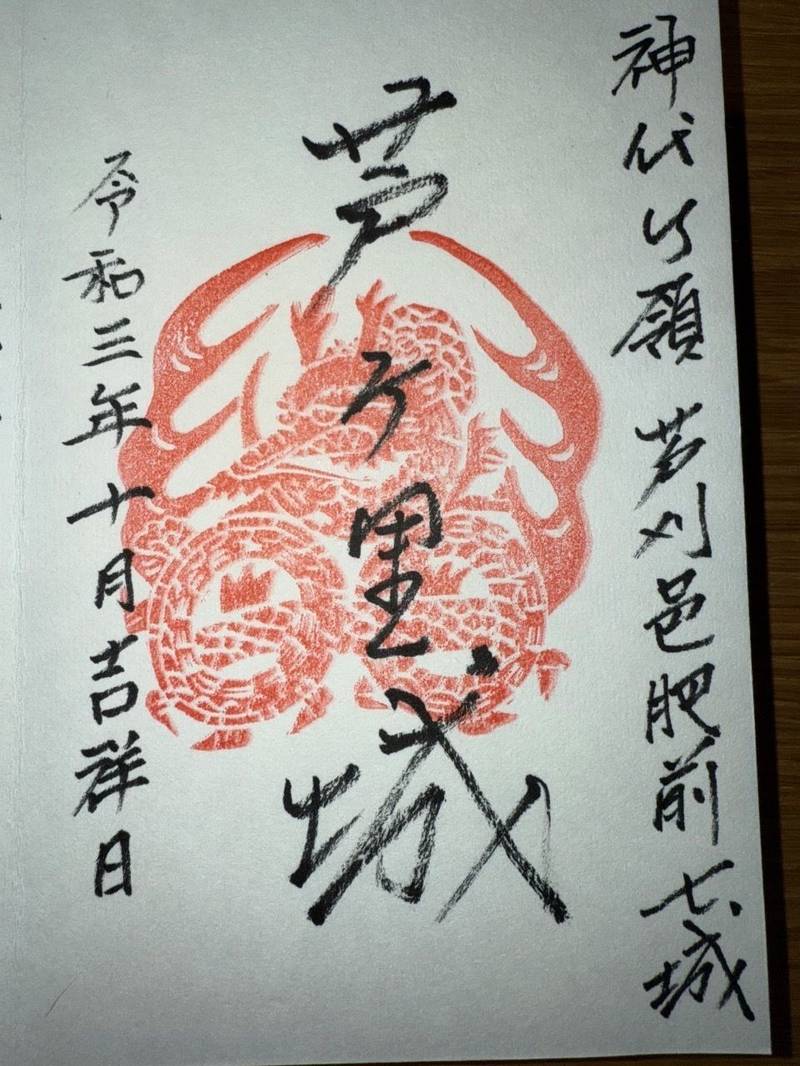 神代領 芦刈邑肥前七城
芦ヶ里城
令和三年十月吉祥日